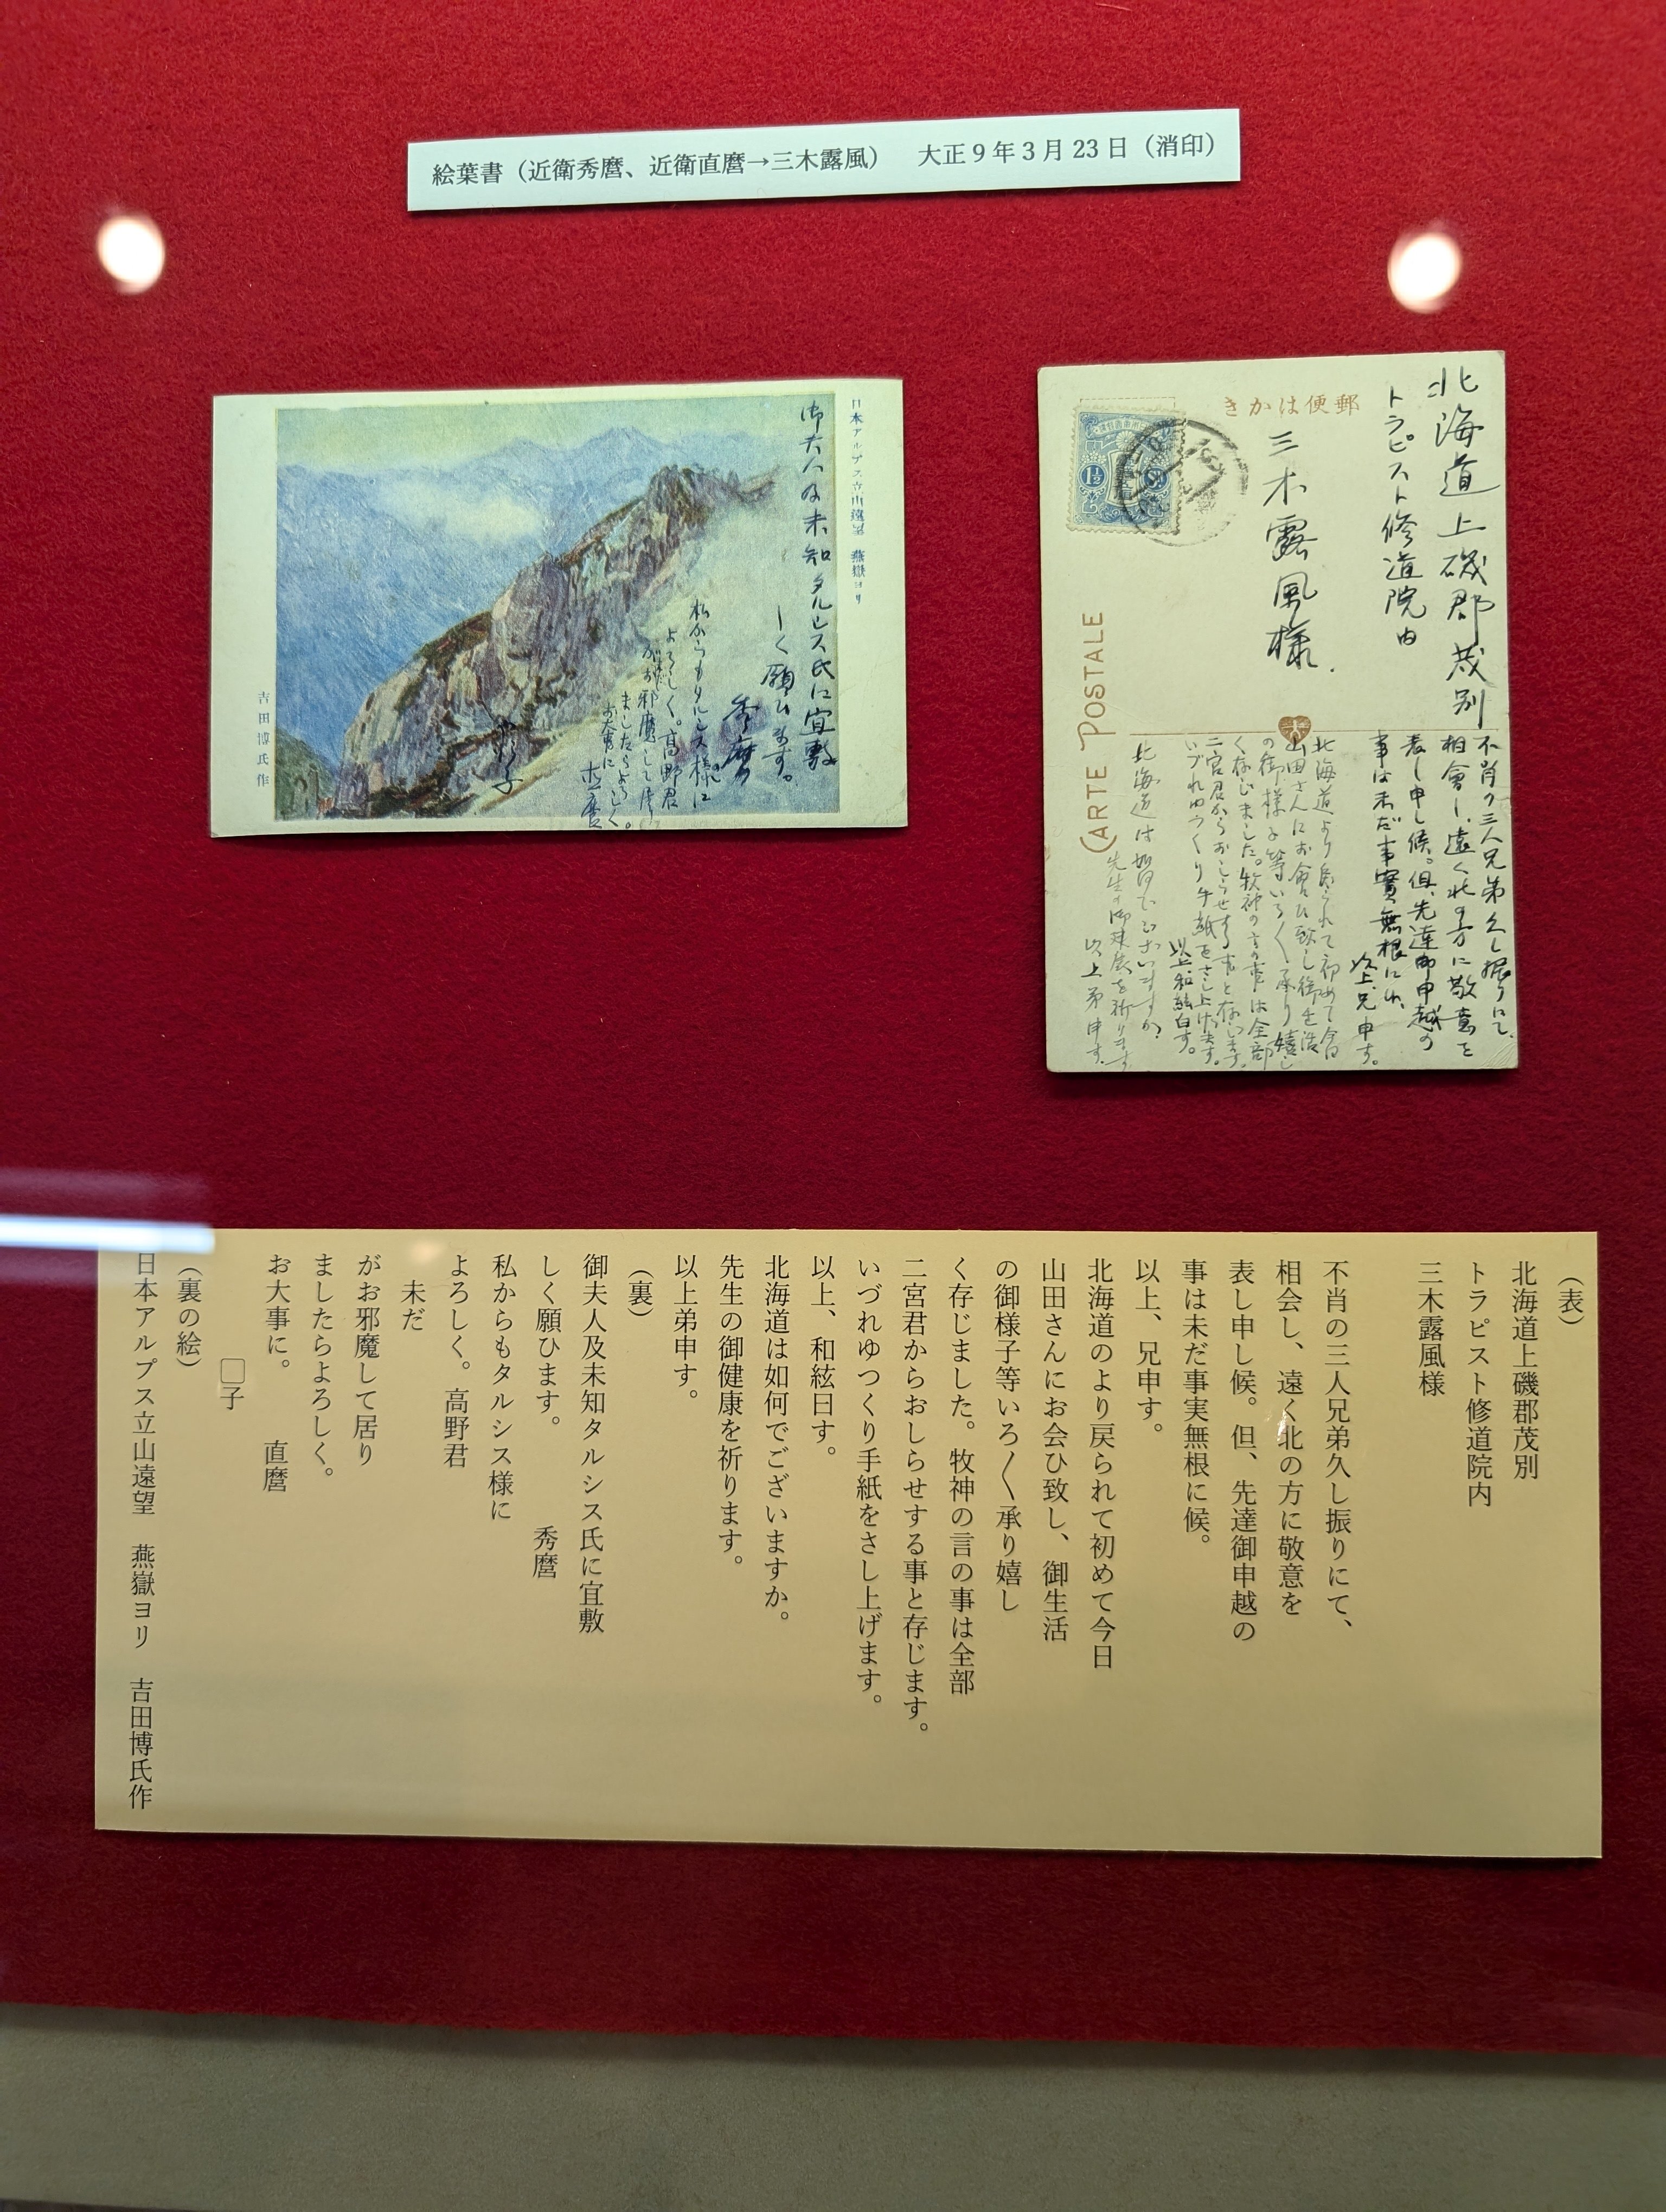 絵葉書（近衛秀麿、近衛直麿→三木露風）　大正9年3月23日（消印）
日本アルプス立山遠望　燕嶽ヨリ
御夫人及未知タルシス氏に宜敷
しく願ひます。
秀麿
私からもタルシス様に
よろしく。高野君
未だ
がお邪魔して居り
ましたらよろしく。
お大事に
直麿
子
吉田博氏作
郵便はかき
CARTE POSTALE
1½
北海道上磯郡茂別
トラピスト修道院内
三木露風様
不肖の三人兄弟久し振りにて、
相會し、遠く北の方に敬意を
表し申し候。但、先達御申越の
事は未だ事實無根に候、
以上、兄申す。
北海道より戻られて初めて今日
山田さんにお會ひ致し御生活
の御様子等いろ〳〵承り嬉し
く存じました。牧神の言の事は全部
二宮君からおしらせする事と存じます。
いづれゆつくり手紙をさし上げます。
以上、和絃白す。
北海道は如何でございますか?
先生の御健康を祈ります
以上弟申す。
（表）
北海道上磯郡茂別
トラピスト修道院内
三木露風様
不肖の三人兄弟久し振りにて、
相会し、遠く北の方に敬意を
表し申し候。但、先達御申越の
事は未だ事実無根に候。
以上、兄申す。
北海道のより戻られて初めて今日
山田さんにお会ひ致し、御生活
の御様子等いろ〳〵承り嬉し
く存じました。牧神の言の事は全部
二宮君からおしらせする事と存じます。
いづれゆつくり手紙をさし上げます。
以上、和絃曰す。
北海道は如何でございますか。
先生の御健康を祈ります。
以上弟申す。
（裏）
御夫人及未知タルシス氏に宜敷
しく願ひます。　秀麿
私からもタルシス様に
よろしく。高野君
未だ
がお邪魔して居り
ましたらよろしく。
お大事に。　直麿
□子
（裏の絵）
日本アルプス立山遠望　燕嶽ヨリ　吉田博氏作